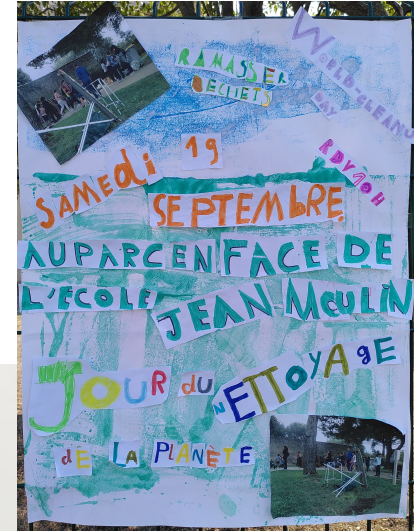 RAMASSER
DECHETS
WORLD-CLEAN
DAY
RDV 10H
SAMEDI 19
SEPTEMBRE
AU PARC EN FACE DE
L'ÉCOLE
JEAN MOULIN
JOUR DU NETTOYAGE
de LA PLANÈTE